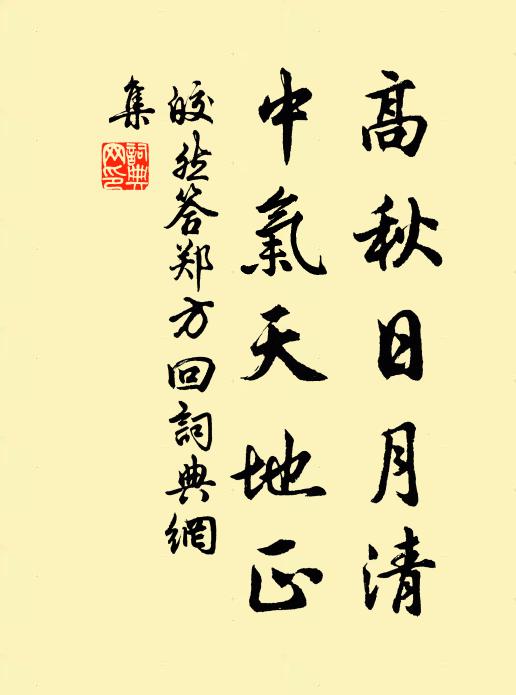 高秋日月清
中氣天地正
皎然答郑方回詞典網
集
詞典
网印